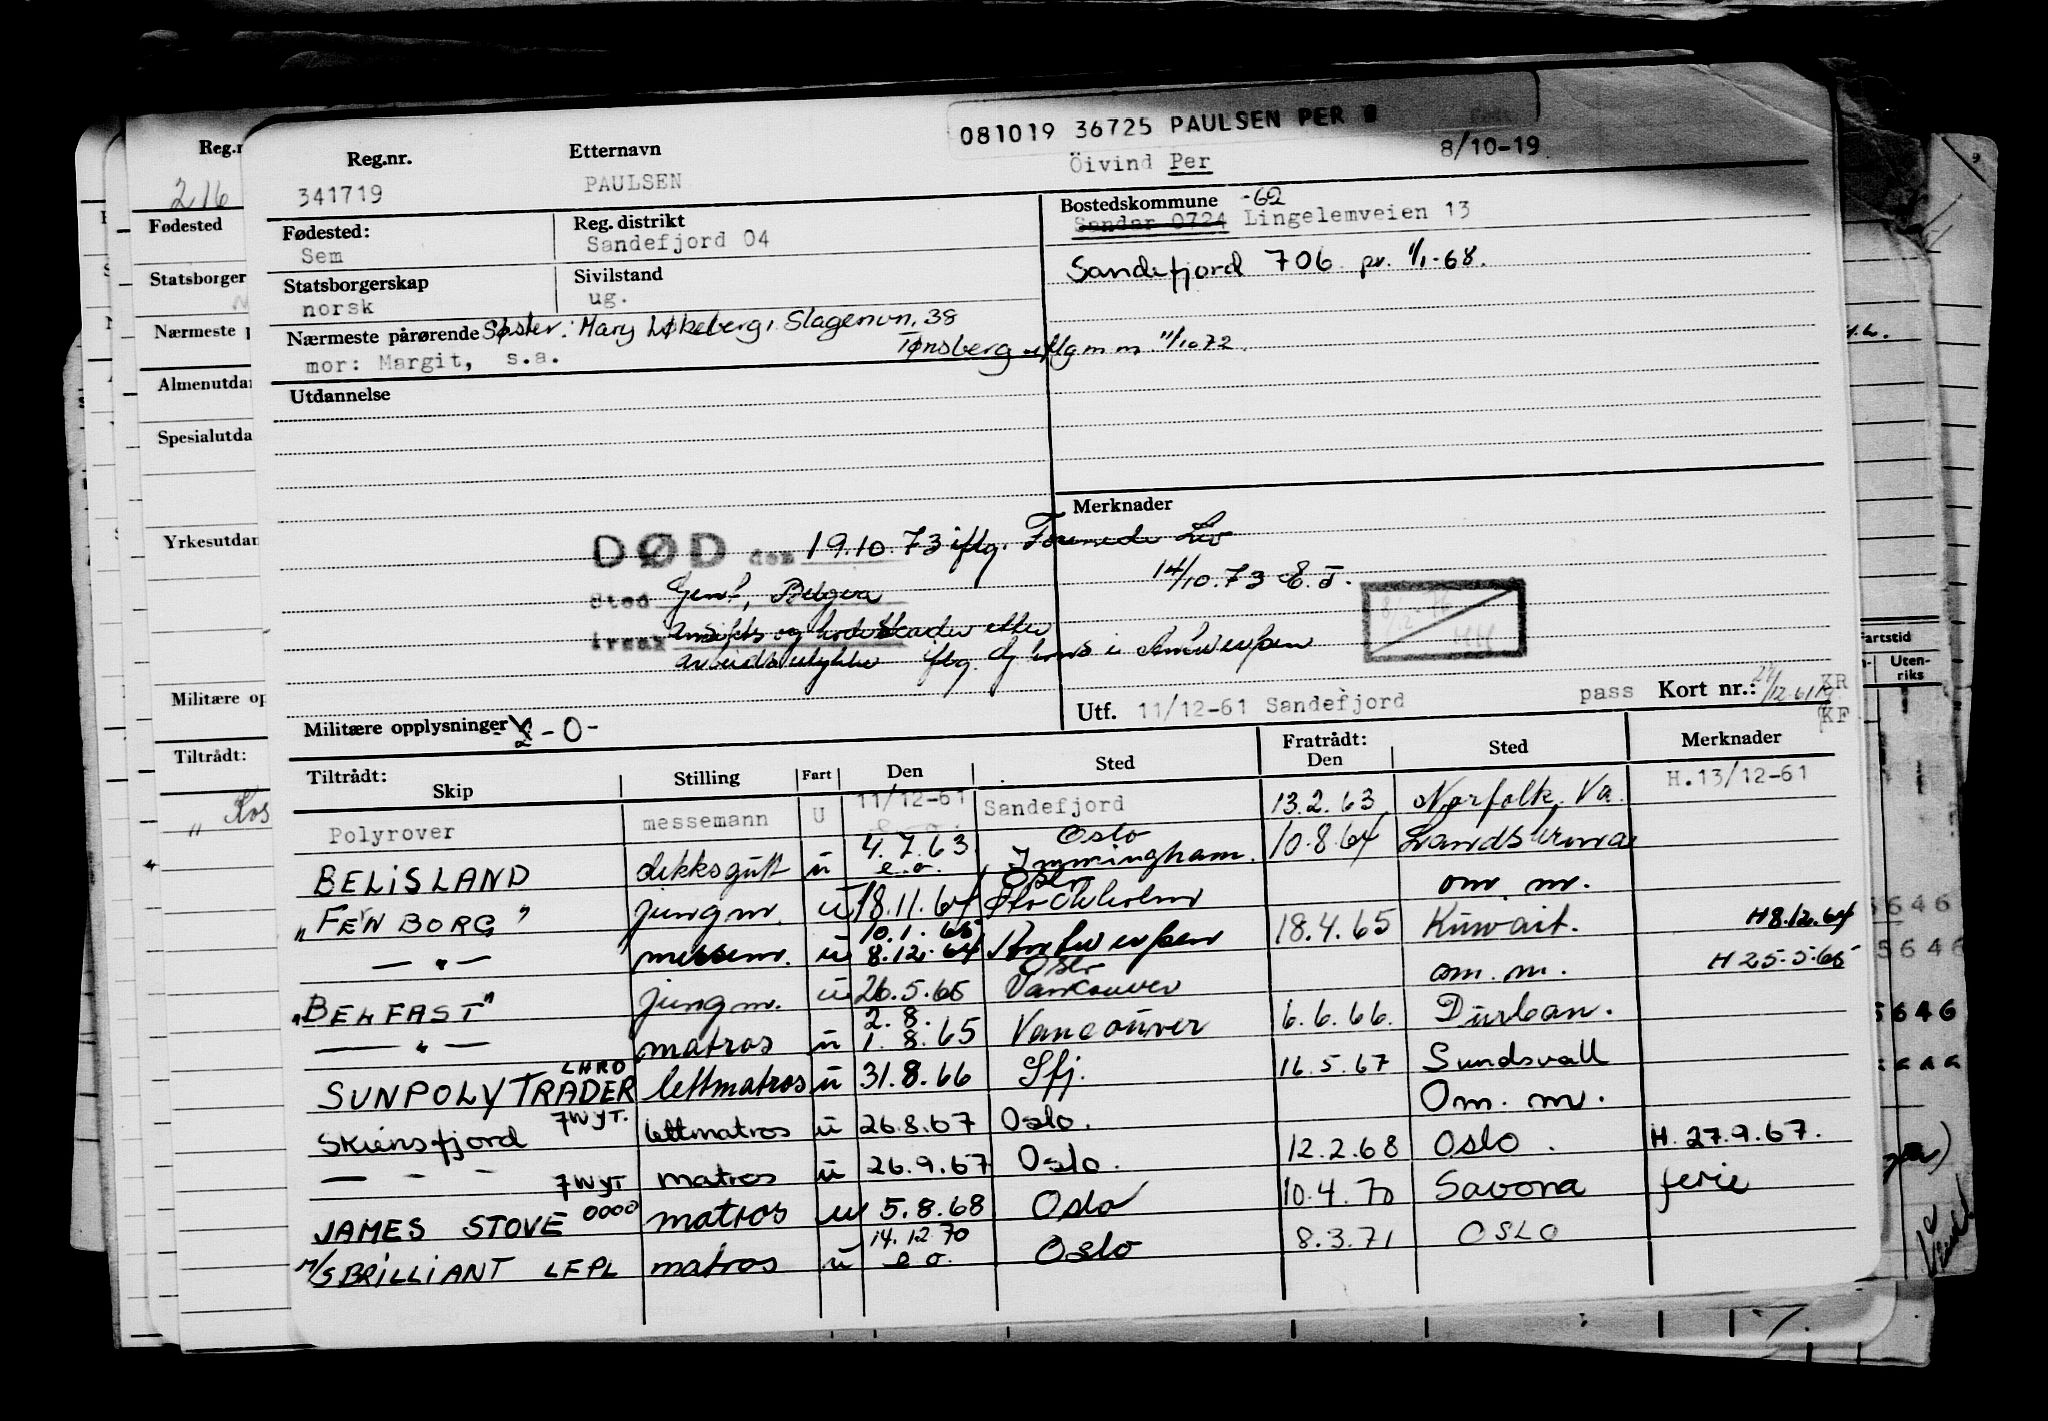 081019 36725 PAULSEN PER
Reg.nr. Etternavn 8/10-19
341719 PAULSEN Öivind Per
Fødested: Reg. distrikt Bostedskommune -62
Sem Sandefjord 04 Sandar 0724 Lingelemveien 13
Statsborgerskap Sivilstand Sandefjord 706 pr. 1/1-68.
norsk ug.
Nærmeste pårørende Søster: Mary Løkeberg, Slagenvn. 38
mor: Margit, s.a. Tønsberg iflg m m 11/10 72.
Utdannelse
Merknader
DØD den 19.10.73 iflg. Forenede Liv
14/10.73 E.T.
Sted Gent, Belgia
årsak ansikts og hodeskader etter
arbeidsulykke iflg. Sj kons i Antwerpen
Militære opplysninger -0-
Utf. 11/12-61 Sandefjord pass Kort nr.: KR
KF
Tiltrådt: Fratrådt:
Skip Stilling Fart Den Sted Den Sted Merknader
Polyrover messemann U 11/12-61 Sandefjord 13.2.63 Norfolk, Va. H.13/12-61
BELISLAND dekksgutt u 4.7.63 e.o. Oslo Immingham. 10.8.64 Landskrona
"FERNBORG" jungm. u 18.11.64 Oslo Stockholm om. m.
— " — messem. u 10.1.65 8.12.64 Antwerpen 18.4.65 Kuwait. H 8.12.64
"BELFAST" jungm. u 26.5.65 Oslo Vancouver om. m. H 25.5.65
— " — matros u 2.8. 1.8.65 Vancouver 6.6.66. Durban.
SUNPOLYTRADER LHRO lettmatros u 31.8.66 Sfj. 16.5.67 Sundsvall
Skiensfjord 7WYT. lettmatros u 26.8.67 Oslo. Om. m.
— " — 7WYT matros u 26.9.67 Oslo. 12.2.68 Oslo. H. 27.9.67.
JAMES STOVE 0000 matros u 5.8.68 Oslo 10.4.70 Savona ferie
M/S BRILLIANT LEPL matros u 14.12.70 e.o. Oslo 8.3.71 OSLO
216
Fødested
Statsborger
Nærmeste p
Almenutdan
Spesialutda
Yrkesutdan
Militære op
Tiltrådt:
Fartstid
Uten-
riks
5646
5646
5646